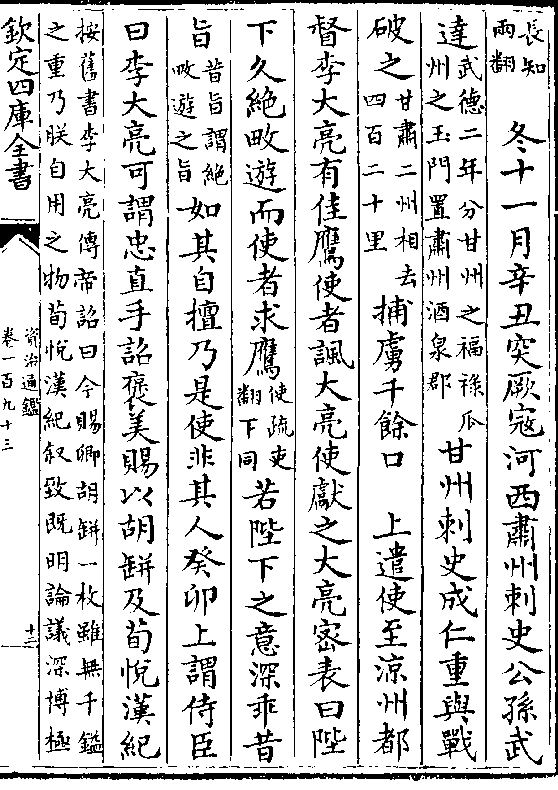 長知
兩翻
冬十一月辛丑突厥寇河西肅州刺史公孫武
達
武德二年分甘州之福祿瓜
州之玉門置肅州酒泉郡
甘州刺史成仁重與戰
破之
甘肅二州相去
四百二十里
捕虜千餘口 上遣使至涼州都
督李大亮有佳鷹使者諷大亮使獻之大亮密表曰陛
下久絕畋遊而使者求鷹
使疏吏
翻下同
若陛下之意深乖昔
旨
昔旨謂絕
畋遊之旨
如其自擅乃是使非其人癸卯上謂侍臣
曰李大亮可謂忠直手詔褒美賜以胡缾及荀悅漢紀
按舊書李大亮傳帝詔曰今賜卿胡缾一枚雖無千鎰
之重乃朕自用之物荀悅漢紀叙致既明論議深博極
欽定四庫全書
資治通鑑
卷一百九十三